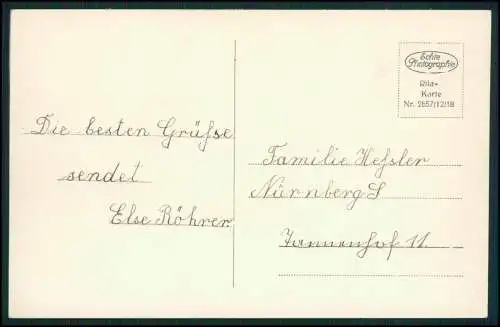 Die besten Grüße
sendet
Else Röhrer.
Echte
Photographie
Rila-
Karte
Nr. 2657/12/18
Familie Heßler
Nürnberg S
Tannenhof 11.